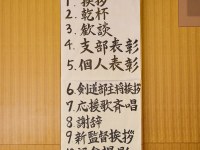 1. 挨拶
2. 乾杯
3. 歓談
4. 支部表彰
5. 個人表彰
6. 剣道部主将挨拶
7. 応援歌斉唱
8. 謝辞
9. 新監督挨拶